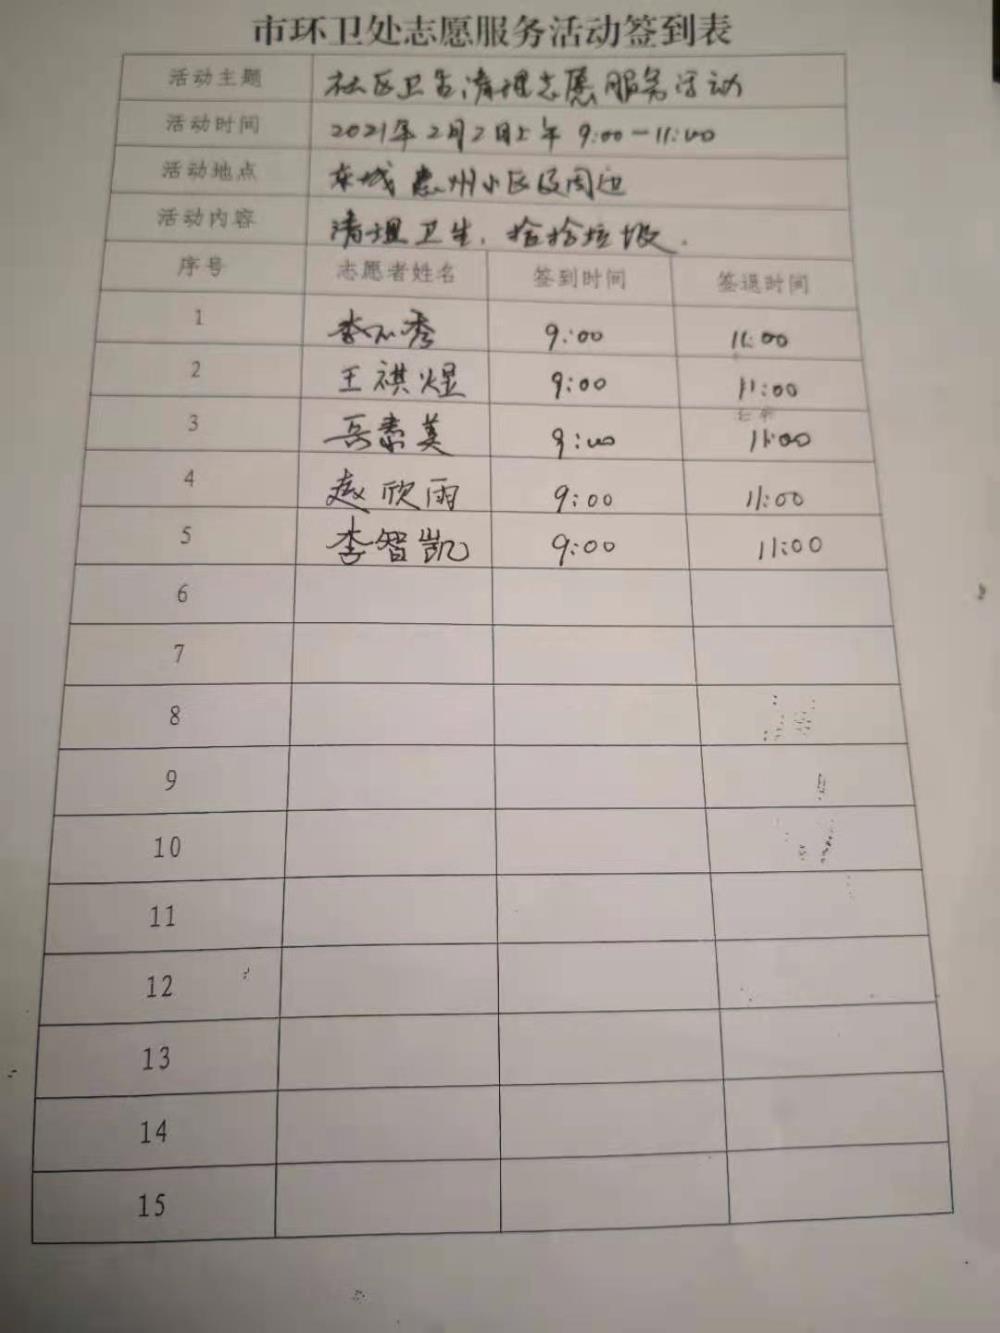 市环卫处志愿服务活动签到表
活动主题 社区卫生清理志愿服务活动
活动时间 2021年2月2日上午 9:00-11:00
活动地点 东城惠州小区及周边
活动内容 清理卫生,捡捡垃圾.
序号 志愿者姓名 签到时间 签退时间
1 李 秀 9:00 11:00
2 王祺煜 9:00 11:00
3 岳素美 9:00 11:00
4 赵欣雨 9:00 11:00
5 李智凯 9:00 11:00
6
7
8
9
10
11
12
13
14
15